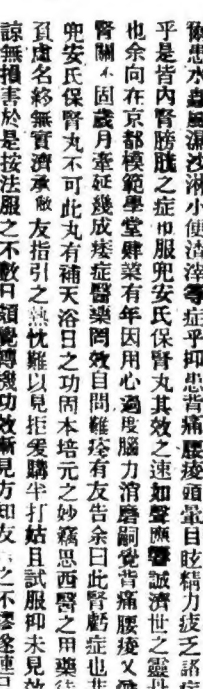 患水蠱風濕沙淋小便渣滓等症乎抑患背痛腰痠頭暈目眩精力疲乏諸症
乎是皆內腎膀胱之症也服兜安氏保腎丸其效之速如聲應響誠濟世之靈
也余向在京都模範學堂肄業有年因用心過度腦力消磨嗣覺背痛腰痠又
腎關不固歲月牽延幾成痿症醫藥罔效自問難痊有友告余曰此腎虧症也非
兜安氏保腎丸不可此丸有補天浴日之功固本培元之妙竊思西醫之用藥往
負虛名終無實濟承敝友指引之熱忱難以見拒爰購半打姑且試服抑未見效
諒無損害於是按法服之不數日頓覺轉機功效漸見方知友之不謬遂連日